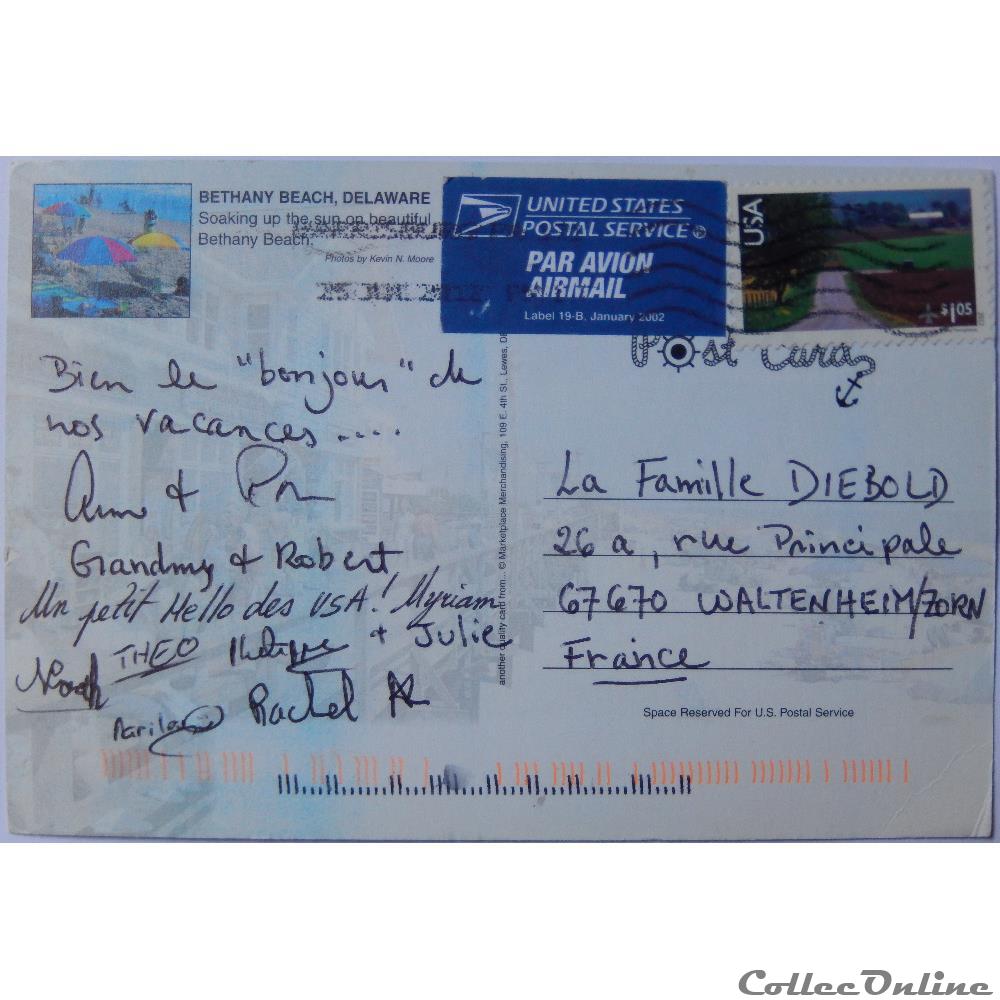 BETHANY BEACH, DELAWARE
Soaking up the sun on beautiful
Bethany Beach.
Photos by Kevin N. Moore
UNITED STATES
POSTAL SERVICE
PAR AVION
AIRMAIL
Label 19-B, January 2002
USA
$1.05
Post Card
Bien le "bonjour" de
nos vacances ....
Anne &
Grandmy & Robert
Un petit Hello des USA! Myriam
THEO Philippe + Julie
Noah
Rachel
another quality card from... © Marketplace Merchandising, 109 E. 4th St., Lewes, DE
La Famille DIEBOLD
26 a, rue Principale
67670 WALTENHEIM/ZORN
France
Space Reserved For U.S. Postal Service
CollecOnline